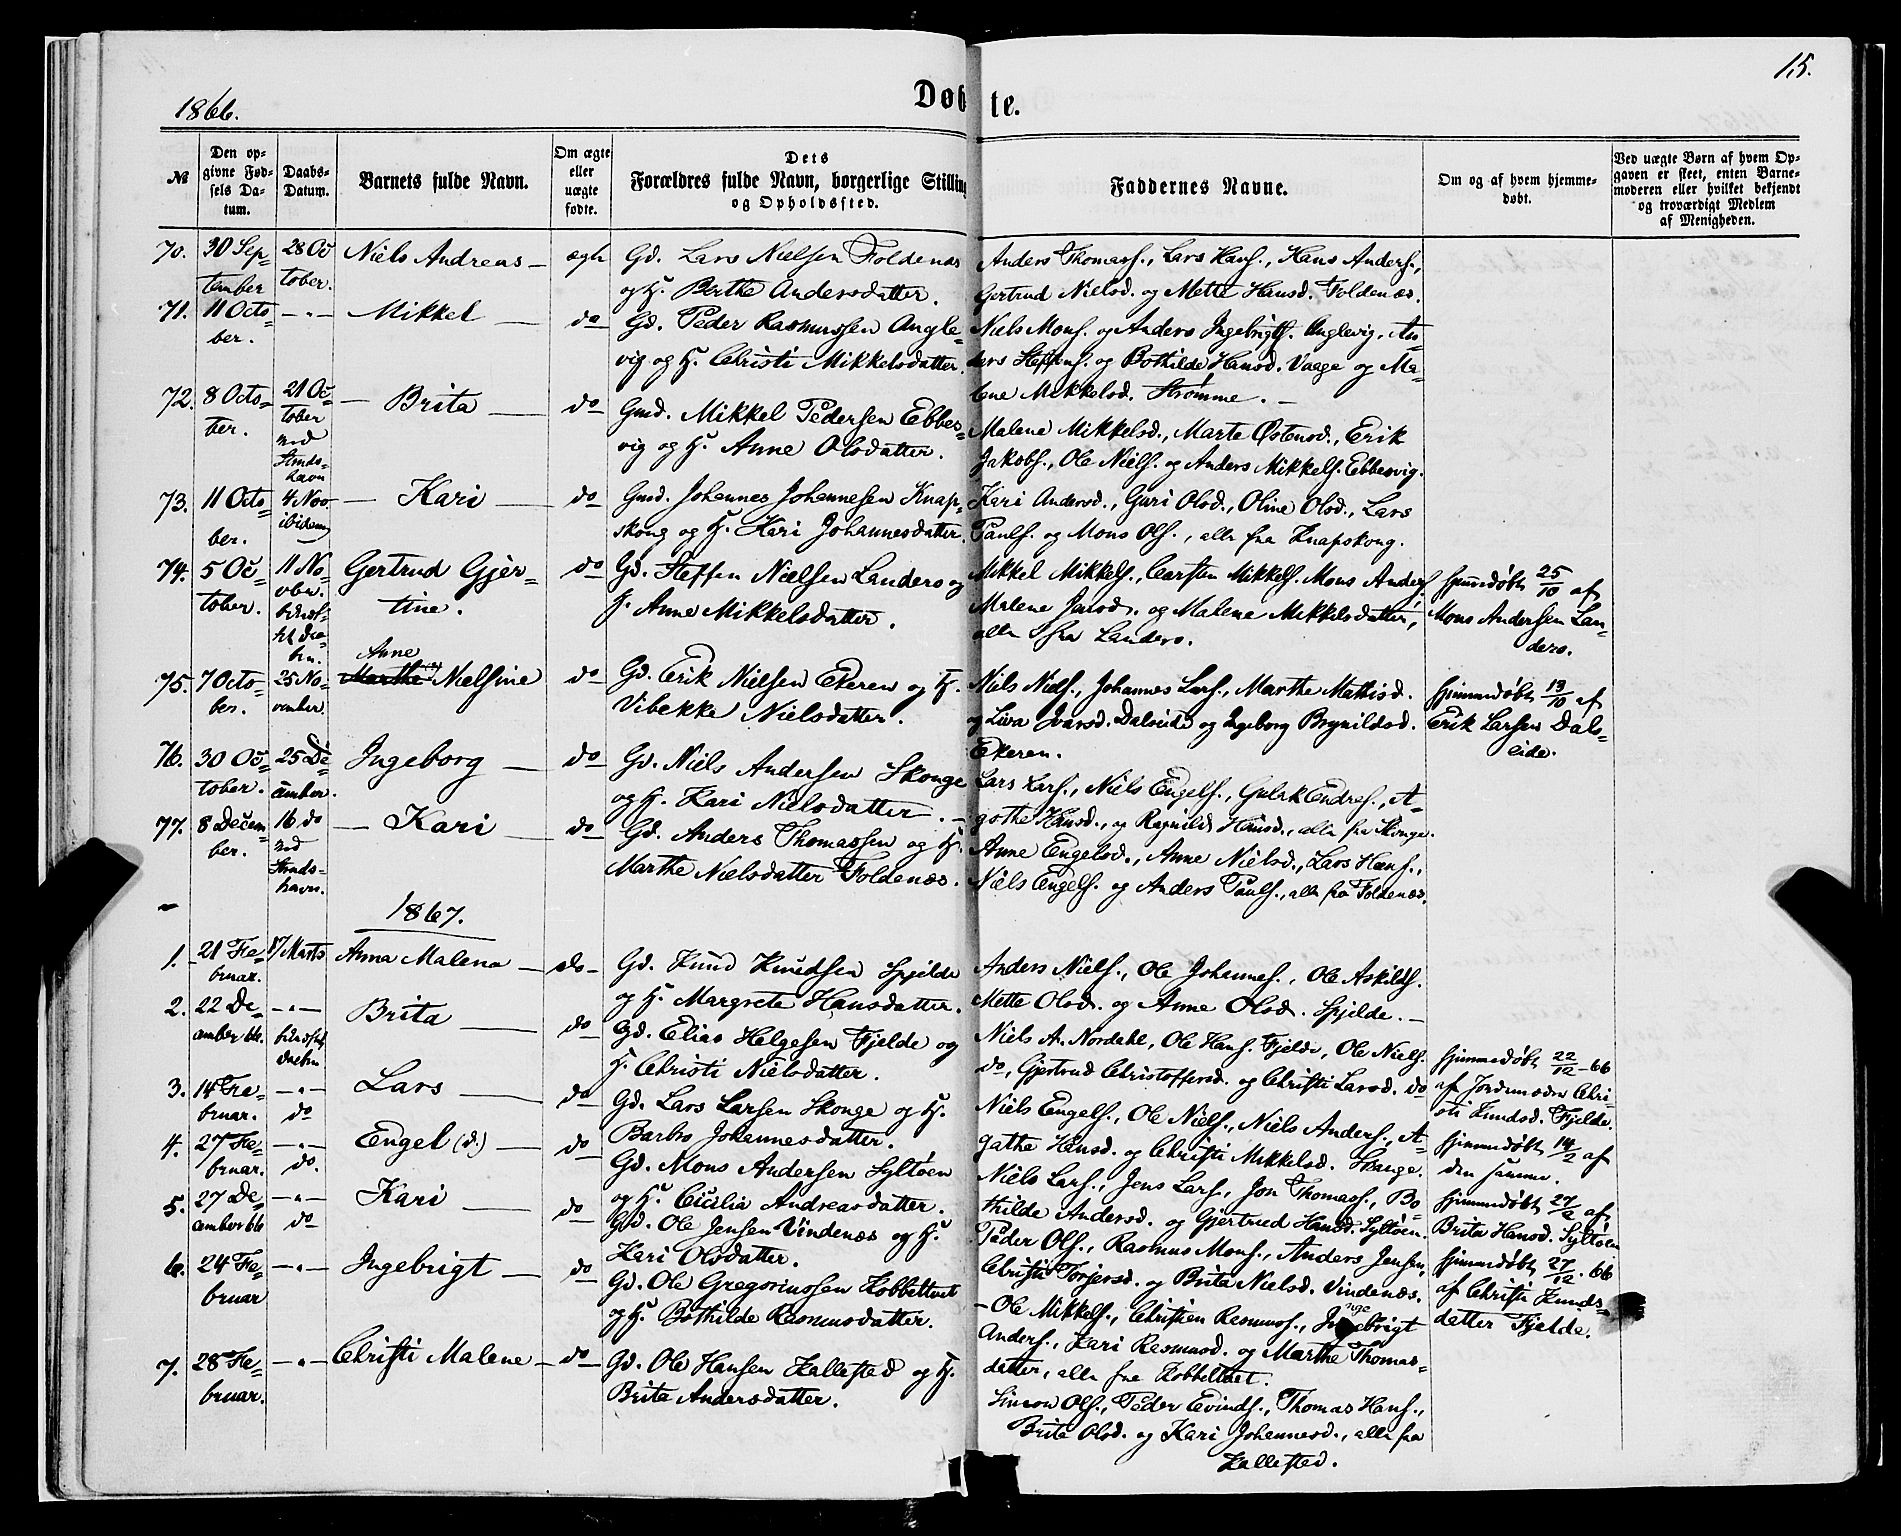 15.
1866.
Døbte.
№
Den op-
givne Fød-
sels Da-
tum.
Daabs-
Datum.
Barnets fulde Navn.
Om ægte
eller
uægte
fødte.
Dets
Forældres fulde Navn, borgerlige Stilling
og Opholdssted.
Faddernes Navne.
Om og af hvem hjemme-
døbt.
Ved uægte Børn af hvem Op-
gaven er skeet, enten Barne-
moderen eller hvilket bekjendt
og troværdigt Medlem
af Menigheden.
70. 30 Sep-
tember
28 Oc
tober.
Niels Andreas —
ægte
Gd. Lars Nielsen Foldenæs
og H. Berthe Andersdatter.
Anders Thomass., Lars Hans., Hans Anders.,
Gertrud Nielsd. og Mette Hansd. Foldenæs.
71. 11 Octo-
ber.
— " —
Mikkel —
do
Gd. Peder Rasmussen Angle-
vig og H. Christi Mikkelsdatter.
Niels Mons. og Anders Ingebrigts. Anglevig, An-
ders Steffens. og Bothilde Hansd. Vaage og Ma-
lene Mikkelsd. Strømme. —
72. 8 Octo-
ber.
21 Oc-
tober
ved
Sunds-
havn
— Brita —
do
Gmd. Mikkel Pedersen Ebbes-
vig og H. Anne Olsdatter.
Malene Mikkelsd., Marte Østensd., Erik
Jakobs., Ole Niels. og Anders Mikkels. Ebbesvig.
73. 11 Octo-
ber.
4 Nov.
ibidem
— Kari —
do
Gmd. Johannes Johannesen Knap-
skoug og H. Kari Johannesdatter.
Kari Andersd., Guri Olsd., Oline Olsd., Lars
Pauls. og Mons Ols., alle fra Knapskoug.
74. 5 Oc-
tober.
11 No-
vbr.
Gertrud Gjer-
tine.
do
Gd. Steffen Nielsen Landero og
H. Anne Mikkelsdatter.
Mikkel Mikkels., Carsten Mikkels. Mons Anders.
Malene Jensd. og Malene Mikkelsdatter,
alle fra Landero.
hjemmedøbt 25/10 af
Mons Andersen Lan-
dero.
75. 7 Octo-
ber.
25 No-
vember.
Anne
Marthe Nielsine
do
Gd. Erik Nielsen Ekeren og H.
Vibekke Nielsdatter.
Niels Niels., Johannes Lars., Marthe Mathisd.
og Liva Ivarsd. Dalseide og Ingeborg Brynildsd.
Ekeren.
hjemmedøbt 13/10 af
Erik Larsen Dals-
eide.
76. 30 Oc-
tober.
25 De-
cember.
Ingeborg —
do
Gd. Niels Andersen Skouge
og H. Kari Nielsdatter. —
Lars Lars., Niels Engels., Gulak Endres., A-
gothe Hansd., og Ragnild Hansd., alle fra Skouge.
77. 8 Decem
ber.
16 do
ved
Sunds-
havn.
— Kari —
do
Gd. Anders Thomassen og H.
Marthe Nielsdatter Foldenæs.
Anne Engelsd., Anne Nielsd., Lars Hans.,
Niels Engels. og Anders Pauls., alle fra Foldenæs.
1867.
1. 21 Fe-
bruar.
17 Marts
Anna Malena —
do
Gd. Knud Knudsen Spjelde
og H. Margrete Hansdatter.
Anders Niels., Ole Johannes., Ole Askilds.
Mette Olsd. og Anne Olsd. Spjelde. —
2. 22 De-
cember 66.
— " —
Brita —
do
Gd. Elias Helgesen Fjelde og
H. Christi Nielsdatter.
Niels A. Nordahl, Ole Hans. Fjelde, Ole Niels.
do, Gjertrud Christoffersd. og Christi Larsd. do
hjemmedøbt 22/12-66
af Jordemoder Chri-
sti Knudsd. Fjelde.
3. 14 Fe-
bruar.
— " —
do
Lars —
do
Gd. Lars Larsen Skouge og H.
Barbro Johannesdatter.
Niels Engels., Ole Niels., Niels Anders., A-
gathe Hansd. og Christi Mikkelsd. Skouge.
hjemmedøbt 14/2 af
den samme.
4. 27 Fe-
bruar.
— " —
do.
Engel (d.) —
do
Gd. Mons Andersen Syltøen
og H. Cicilia Andreasdatter.
Niels Lars., Jens Lars., Jon Thomass., Bo-
thilde Andersd. og Gjertrud Hansd. Syltøen.
hjemmedøbt 27/2 af
Brita Hansd. Syltøen
5. 27 De-
cember 66
— " —
do
Kari —
do
Gd. Ole Jensen Vindenæs og H.
Kari Olsdatter.
Peder Ols., Rasmus Mons., Anders Jensen,
Christi Torjersd. og Brita Nielsd. Vindenæs.
hjemmedøbt 27/12-66
af Christi Knuds-
datter Fjelde.
6. 24 Fe-
bruar
— " —
Ingebrigt —
do
Gd. Ole Gregoriussen Kobbeltvet
og H. Bothilde Rasmusdatter.
— Ole Mikkels., Christien Rasmuss., Ingebrigt
Anders., Kari Rasmusd. og Marthe Thomas-
datter, alle fra Kobbeltvet.
7. 28 Fe-
bruar.
— " —
Christi Malene —
do
Gd. Ole Hansen Kallested og H.
Brita Andersdatter.
Simon Ols., Peder Eivinds., Thomas Hans.,
Brite Olsd. og Kari Johannesd., alle fra
Kallested.